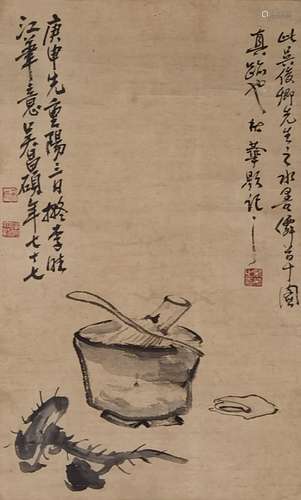 此吳俊卿先生之水墨僊首十圖
真跡也 松華題記
庚申先重陽三日擬李晴
江筆意吳昌碩年七十七